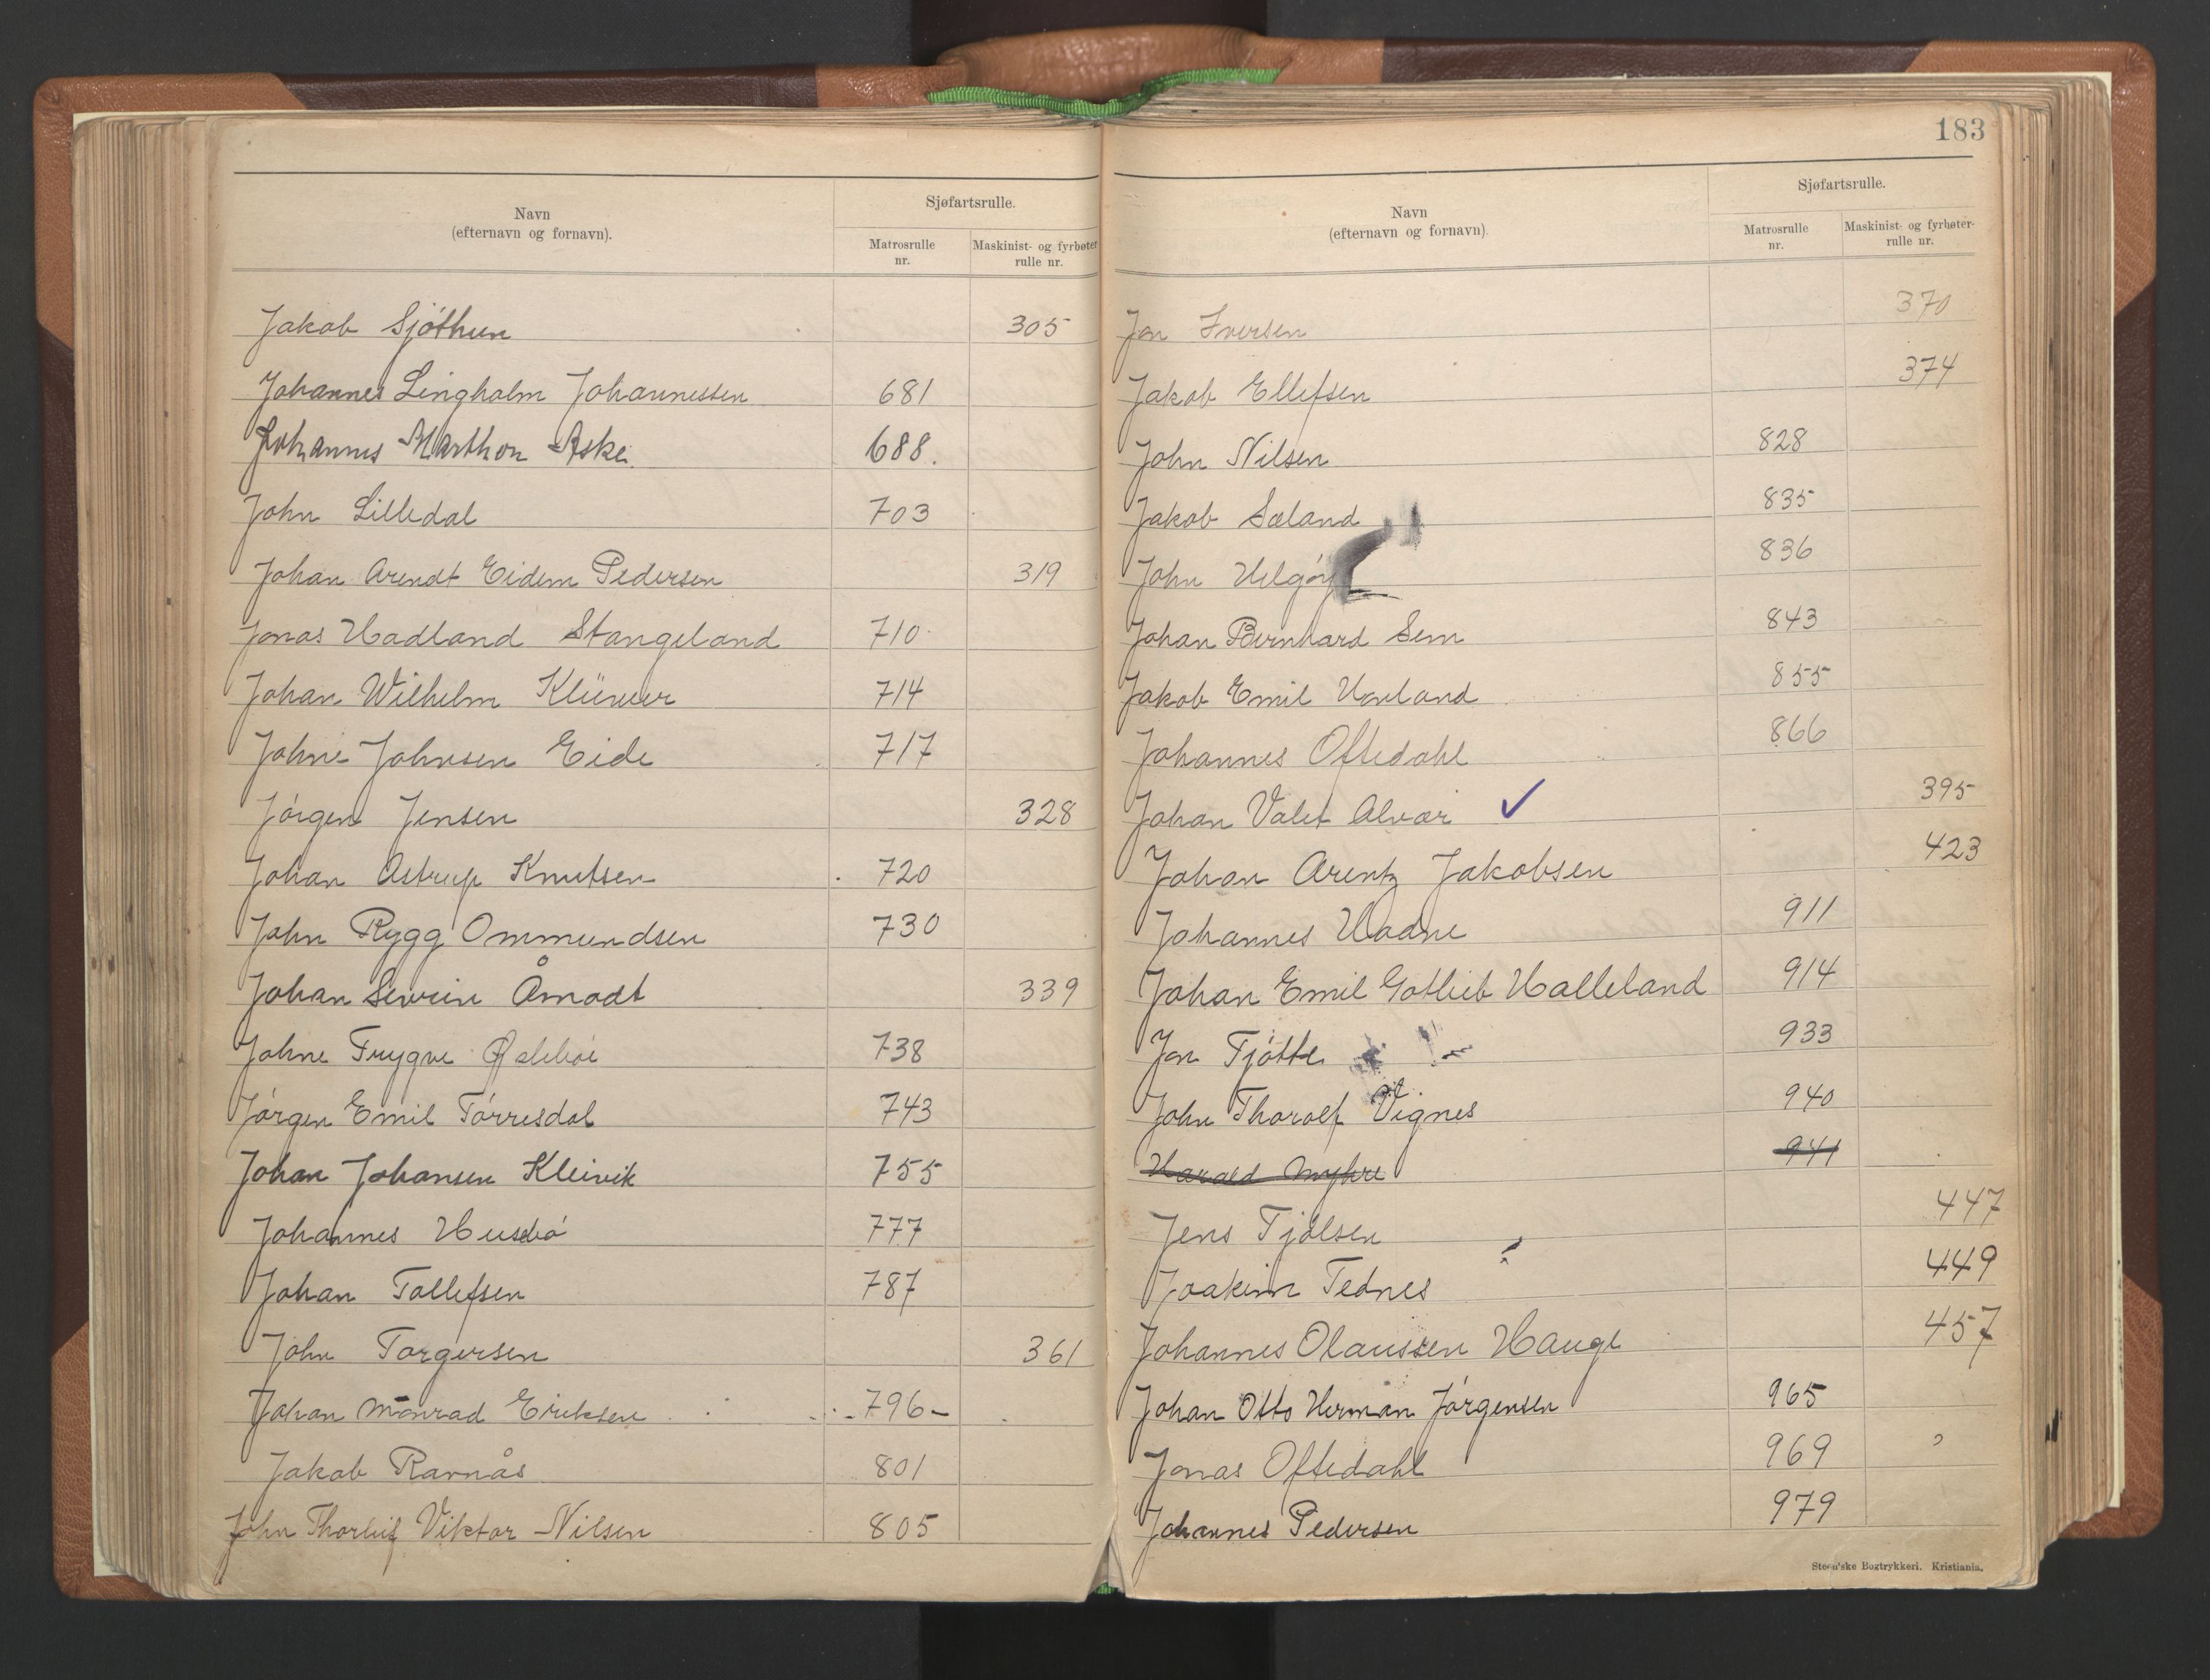 Navn
(efternavn og fornavn).
Sjøfartsrulle.
Matrosrulle nr.
Maskinist- og fyrbøter rulle nr.
Jakob Sjöthun 305
Johannes Lingholm Johannessen 681
Johannes Marthon Aske 688.
John Lilledal 703
Johan Arendt Eidem Pedersen 319
Jonas Hadland Stangeland 710
Johan Wilhelm Klüwer 714
Johne Johnsen Eide 717
Jörgen Jensen 328
Johan Astrup Knutsen 720
John Rygg Ommundsen 730
Johan Severin Åmodt 339
Johne Trygve 738
Jörgen Emil Törresdal 743
Johan Johansen Kleivik 755
Johannes Husebö 777
Johan Tollefsen 787
John Torgersen 361
Johan Monrad Eriksen 796-
Jakob Ravnås 801
John Thorleif Viktor Nilsen 805
183
Navn
(efternavn og fornavn).
Sjøfartsrulle.
Matrosrulle nr.
Maskinist- og fyrbøter- rulle nr.
Jon Iversen 370
Jakob Ellefsen 374
John Nilsen 828
Jakob Sæland 835
John Helgöy 836
Johan Bernhard Sem 843
Jakob Emil Haaland 855
Johannes Oftedahl 866
Johan Valet Alvær ✓ 395
Johan Arentz Jakobsen 423
Johannes Hadne 911
Johan Emil Gotlieb Halleland 914
Jon Tjötta 933
John Thorolf Vignes 940
Harald Myhre 941
Jens Tjölsen 447
Joakim Tednes 449
Johannes Olaussen Hauge 457
Johan Otto Herman Jörgensen 965
Jonas Oftedahl 969
Johannes Pedersen 979
Steen'ske Bogtrykkeri. Kristiania.